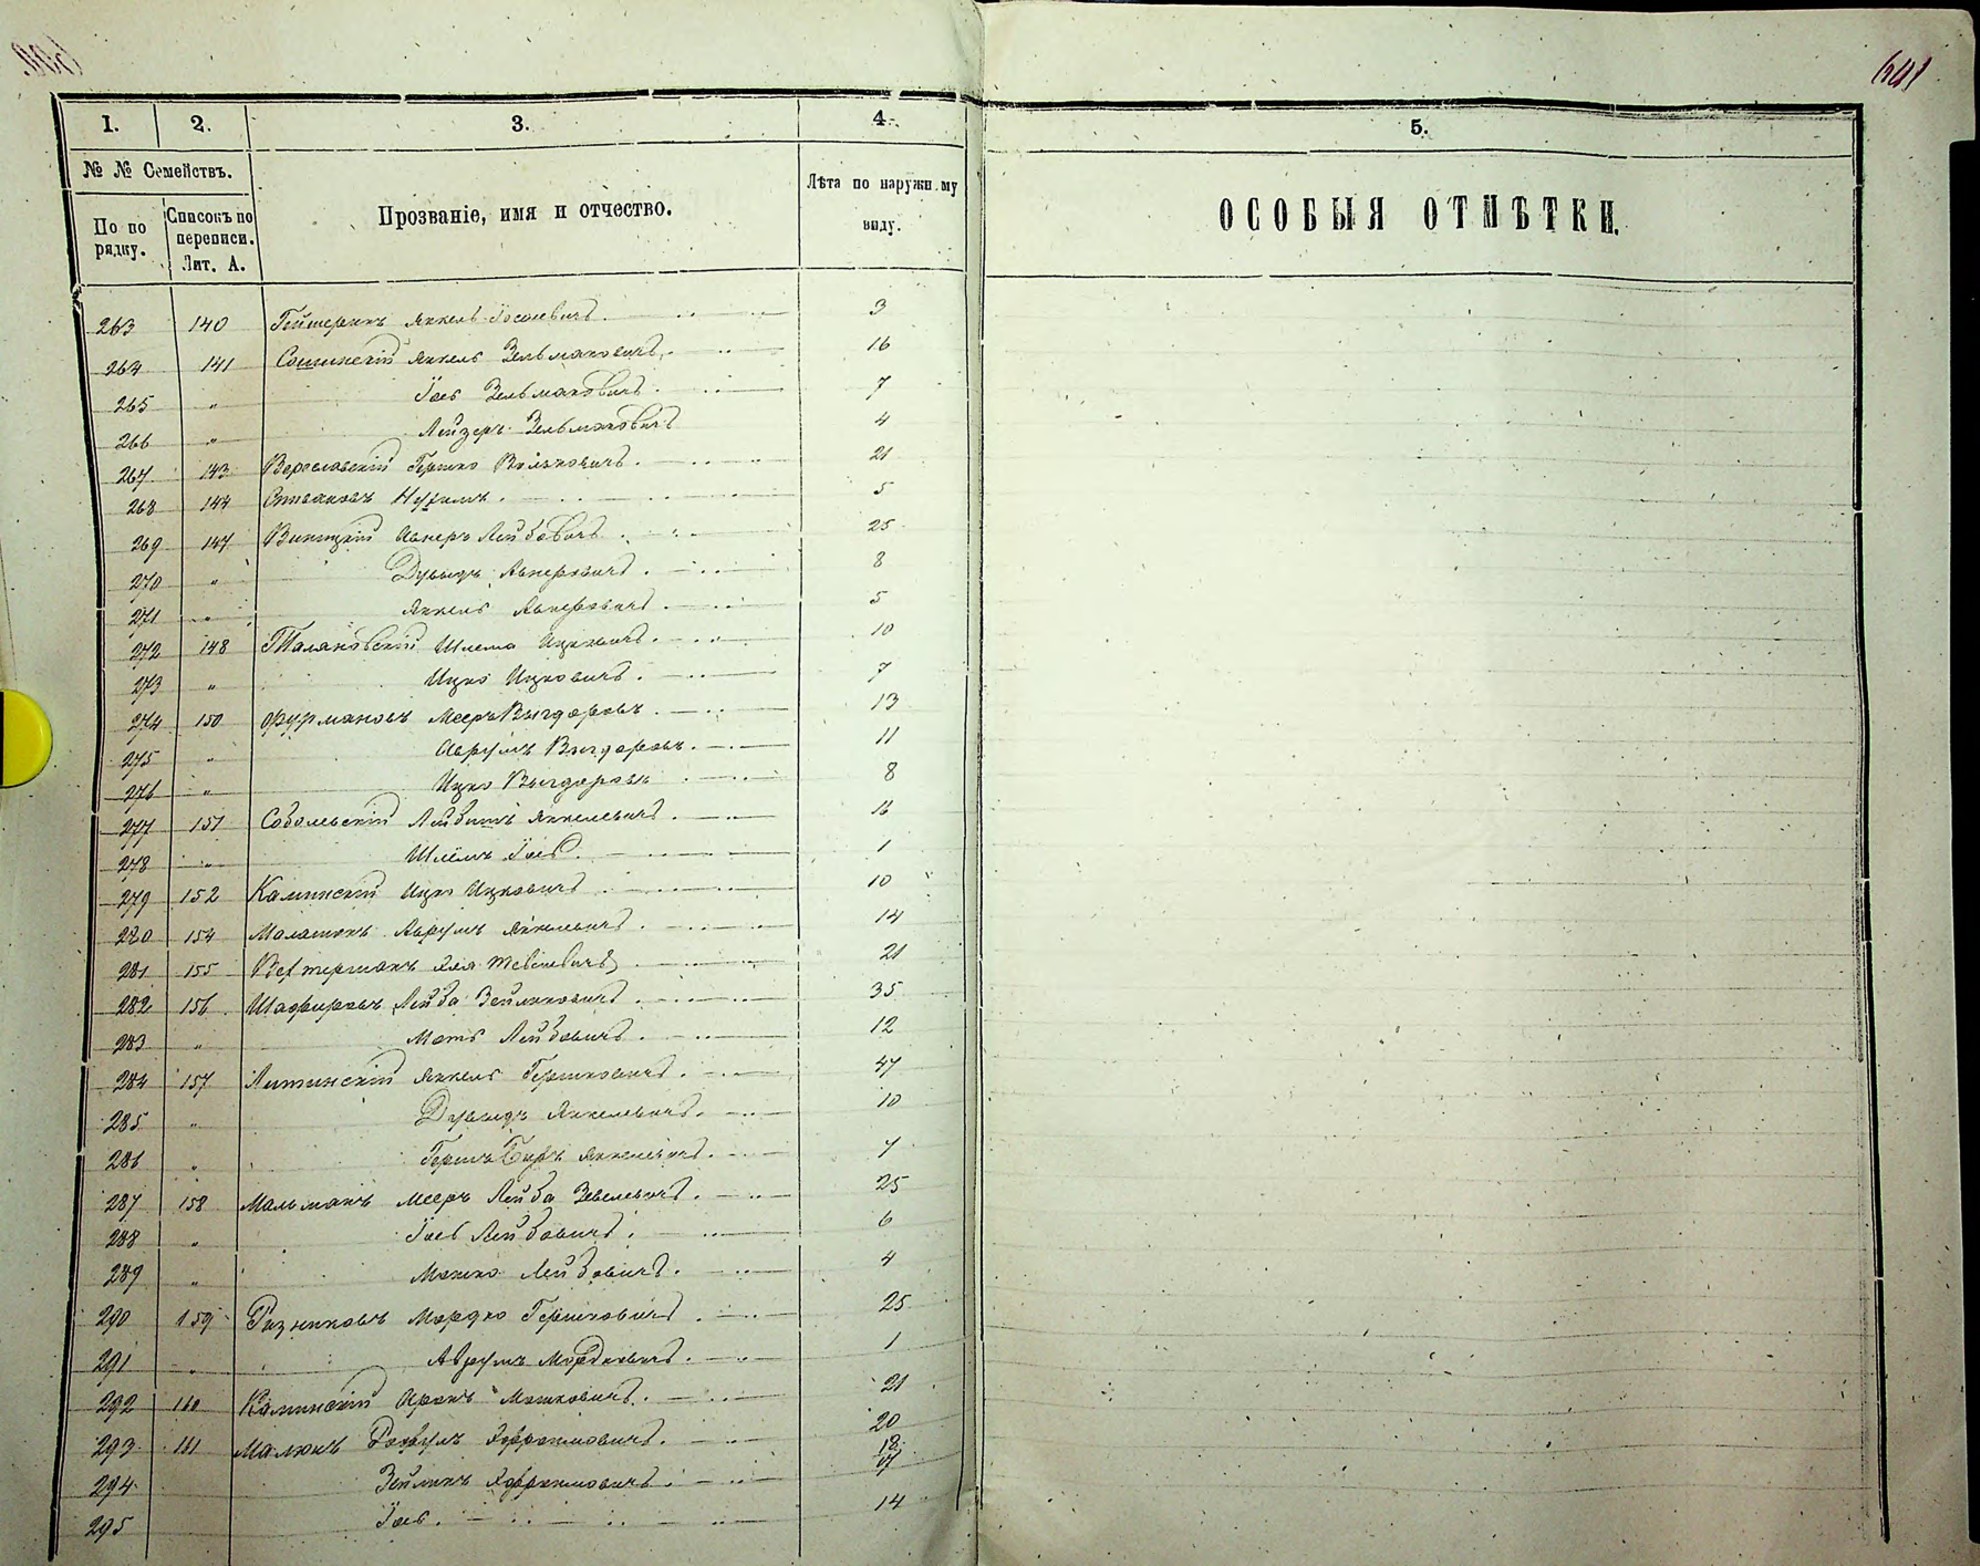 1. 2. 3. 4. 5.
№ № Семействъ.
По по рядку.
Списокъ по переписи. Лит. А.
Прозваніе, имя и отчество.
Лѣта по наружн му виду.
ОСОБЫЯ ОТМѢТКИ.
263 140 Янкель Іосіевичъ 3
264 141 Янкель Зельмановичъ 16
265 " Іось Зельмановичъ 7
266 " Лейзеръ Зельмановичъ 4
267 143 Гершко Вольковичъ 21
268 144 Спиваковъ Нухимъ 5
269 147 Виницкій Авнеръ Лейбовичъ 25
270 " Дувыдъ Авнеровичъ 8
271 " Янкель Авнеровичъ 5
272 148 Шлема Ицковичъ 10
273 " Ицко Ицковичъ 7
274 150 Фурмановъ Мееръ Выгдоровъ 13
275 " Аврумъ Выгдоровъ 11
276 " Ицко Выгдоровъ 8
277 151 Собольевскій Янкелевичъ 16
278 " Іось 1
279 152 Каминскій Ицко Ицковичъ 10
280 154 Аврумъ Янкелевичъ 14
281 155 21
282 156 Шафировъ Лейба Зейликовичъ 35
283 " Мотъ Лейбовичъ 12
284 157 Литинскій Янкель Гершковичъ 47
285 " Дувыдъ Янкелевичъ 10
286 " Гершъ Беръ Янкелевичъ 7
287 158 Мальманъ Мееръ Лейба Зевелевичъ 25
288 " Іось Лейбовичъ 6
289 " Мошко Лейбовичъ 4
290 159 Ризниковъ Мордко Гершковичъ 25
291 " Аврумъ Мордковичъ 1
292 160 Каминскій Аронъ Мошковичъ 21
293 161 Малюкъ Рафулъ Эфроимовичъ 20
294 Зейликъ Эфроимовичъ
295 Іось 14